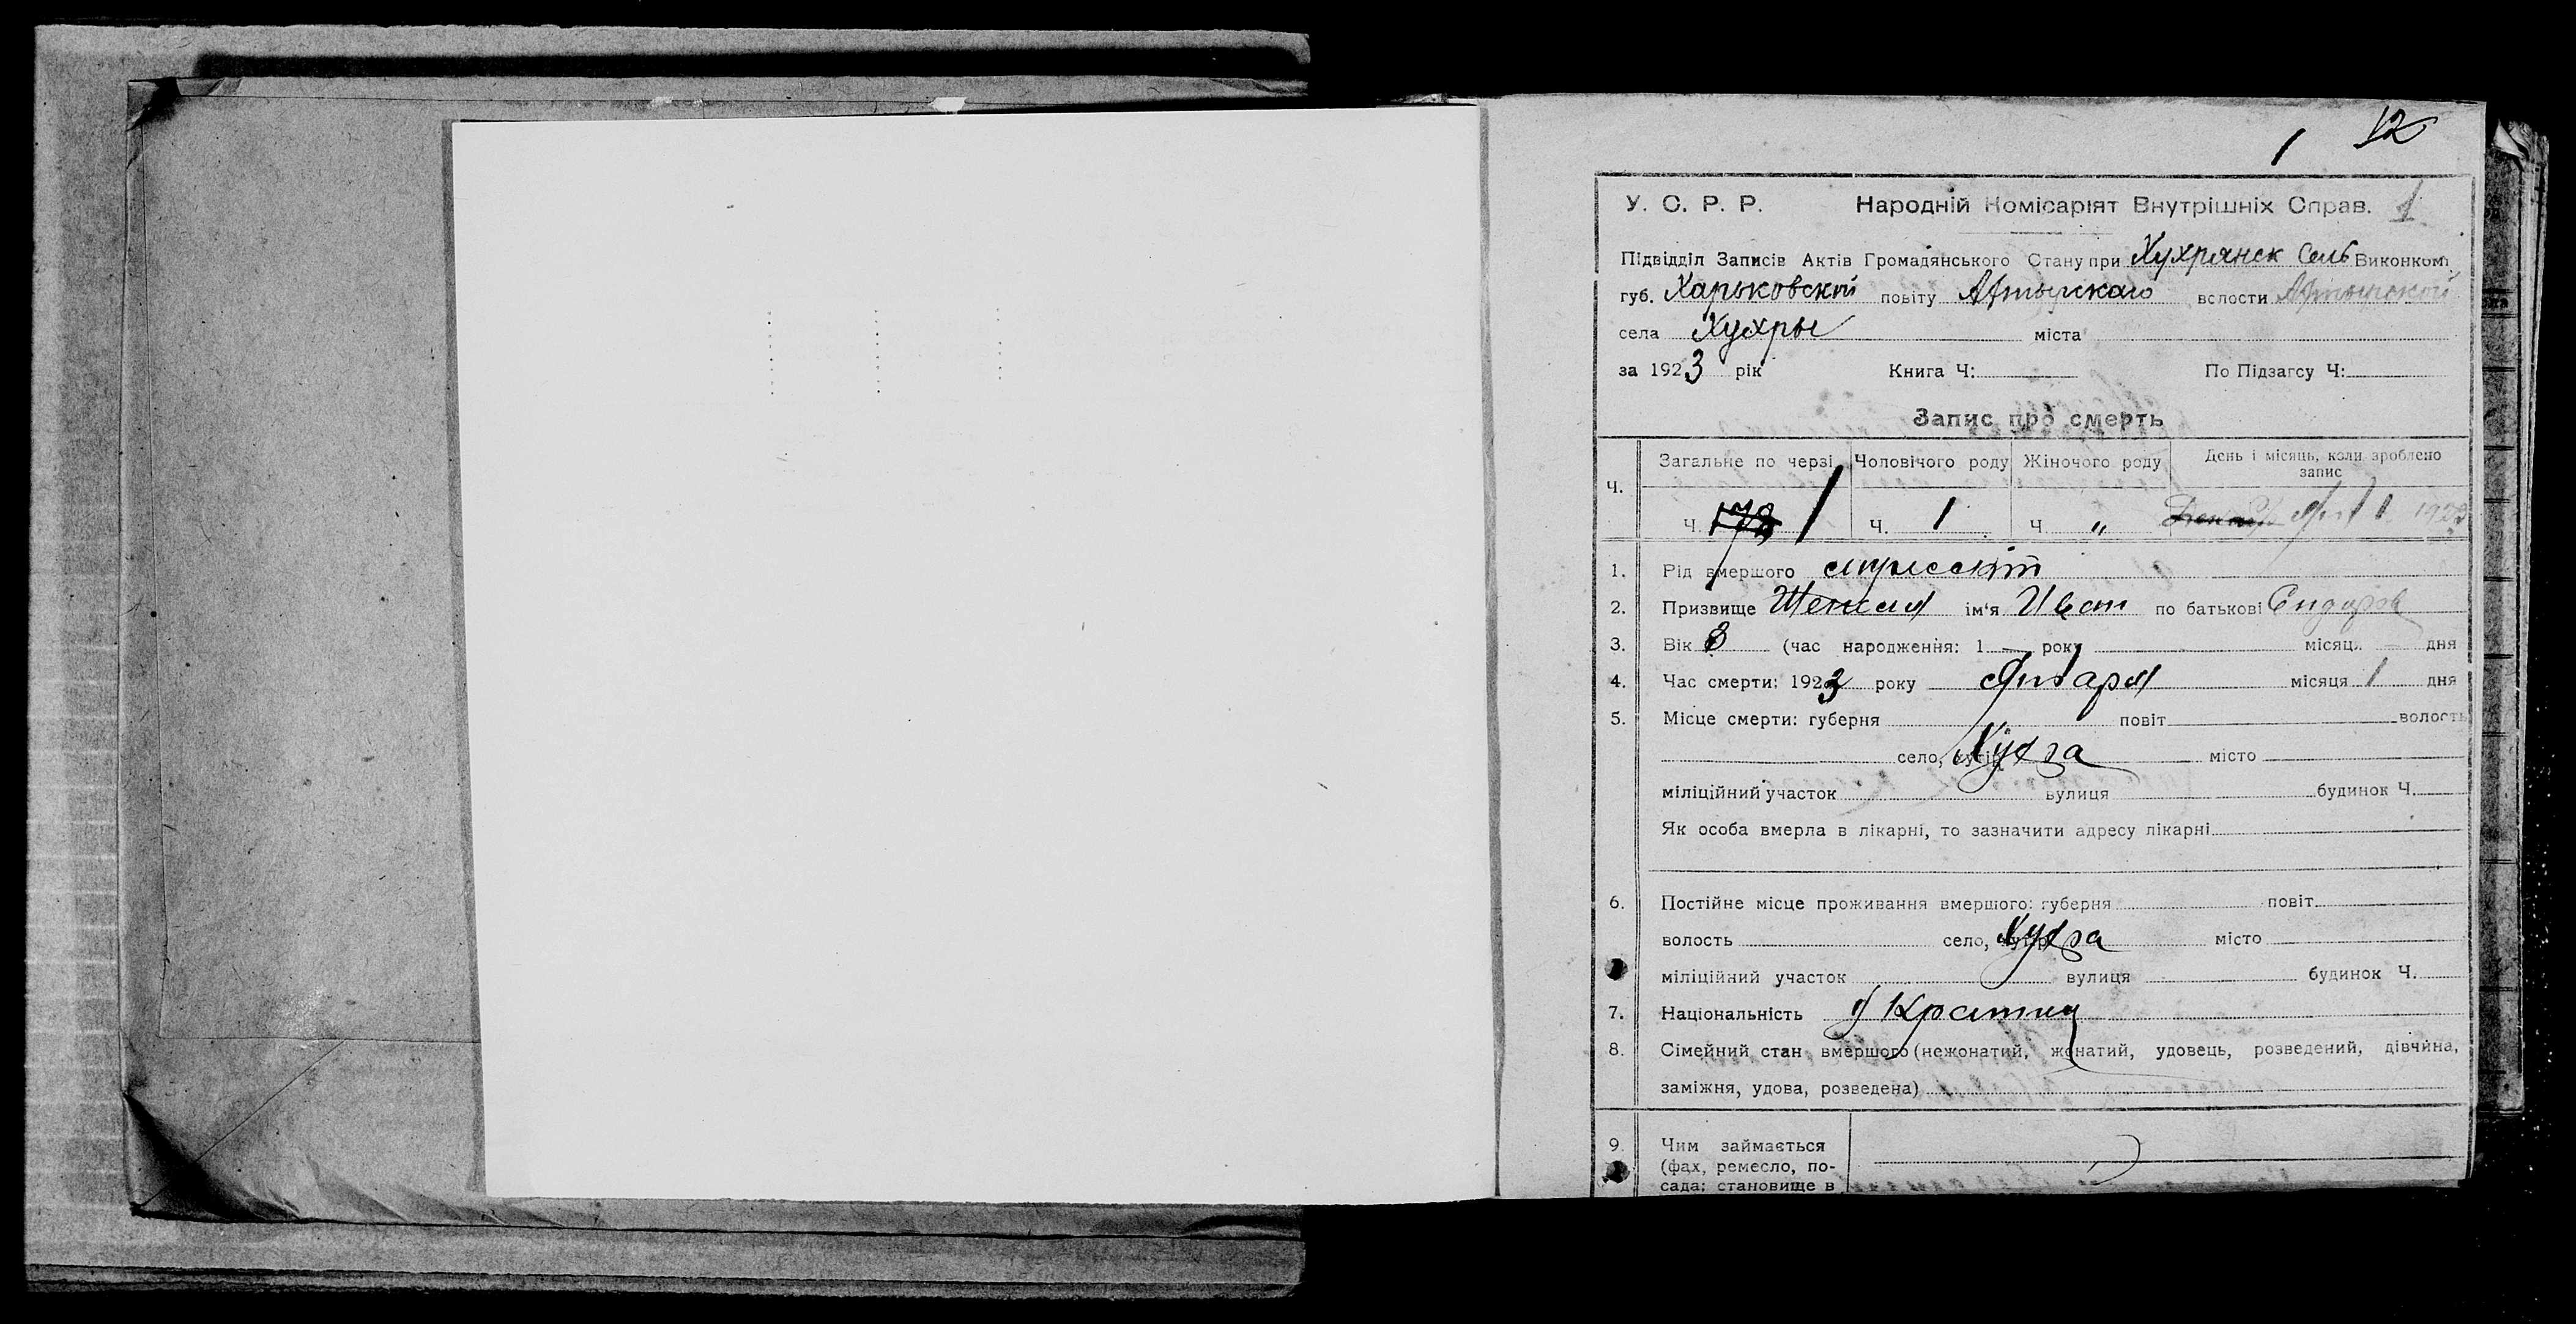 1 12
У. С. Р. Р. Народній Комісаріят Внутрішніх Справ. 1
Підвідділ Записів Актів Громадянського Стану при Хухрянск Сель Виконком.
губ. Харьковской повіту Ахтырскаго волости Ахтырской
села Хухры міста
за 1923 рік Книга Ч: По Підзагсу Ч:
Запис про смерть
Ч. Загальне по черзі Чоловічого роду Жіночого роду День і місяць, коли зроблено запис
Ч. 178 1 Ч. 1 Ч. „ 1 1923
1. Рід вмершого
2. Призвище ім'я Иван по батькові
3. Вік 8 (час народження: 1 — року місяця — дня
4. Час смерти: 1923 року Января місяця 1 дня
5. Місце смерти: губерня повіт волость
село, хутір Хухра місто
міліційний участок вулиця будинок Ч.
Як особа вмерла в лікарні, то зазначити адресу лікарні
6. Постійне місце проживання вмершого: губерня повіт
волость село, хутір Хухра місто
міліційний участок вулиця будинок Ч.
7. Національність
8. Сімейний стан вмершого (нежонатий, жонатий, удовець, розведений, дівчина,
заміжня, удова, розведена)
9. Чим займається
(фах, ремесло, по-
сада; становище в